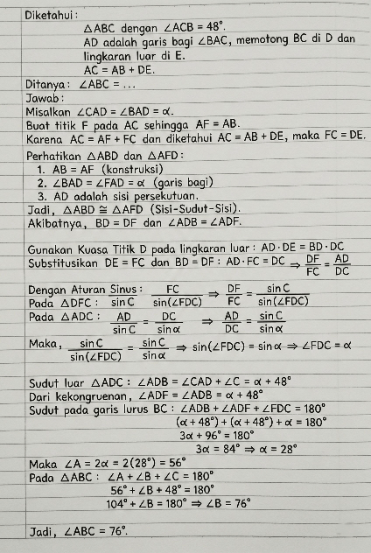 Diketahui:
△ABC dengan ∠ACB = 48°.
AD adalah garis bagi ∠BAC, memotong BC di D dan
lingkaran luar di E.
AC = AB + DE.
Ditanya: ∠ABC = ...
Jawab:
Misalkan ∠CAD = ∠BAD = α.
Buat titik F pada AC sehingga AF = AB.
Karena AC = AF + FC dan diketahui AC = AB + DE, maka FC = DE.
Perhatikan △ABD dan △AFD:
1. AB = AF (konstruksi)
2. ∠BAD = ∠FAD = α (garis bagi)
3. AD adalah sisi persekutuan.
Jadi, △ABD ≅ △AFD (Sisi-Sudut-Sisi).
Akibatnya, BD = DF dan ∠ADB = ∠ADF.
Gunakan Kuasa Titik D pada lingkaran luar: AD·DE = BD·DC
Substitusikan DE = FC dan BD = DF: AD·FC = DC ⇒ DF/FC = AD/DC
Dengan Aturan Sinus:
Pada △DFC: DF/sin C = FC/sin(∠FDC) ⇒ DF/FC = sin C/sin(∠FDC)
Pada △ADC: AD/sin C = DC/sin α ⇒ AD/DC = sin C/sin α
Maka, sin C/sin(∠FDC) = sin C/sin α ⇒ sin(∠FDC) = sin α ⇒ ∠FDC = α
Sudut luar △ADC: ∠ADB = ∠CAD + ∠C = α + 48°
Dari kekongruenan, ∠ADF = ∠ADB = α + 48°
Sudut pada garis lurus BC: ∠ADB + ∠ADF + ∠FDC = 180°
(α + 48°) + (α + 48°) + α = 180°
3α + 96° = 180°
3α = 84° ⇒ α = 28°
Maka ∠A = 2α = 2(28°) = 56°
Pada △ABC: ∠A + ∠B + ∠C = 180°
56° + ∠B + 48° = 180°
104° + ∠B = 180° ⇒ ∠B = 76°
Jadi, ∠ABC = 76°.